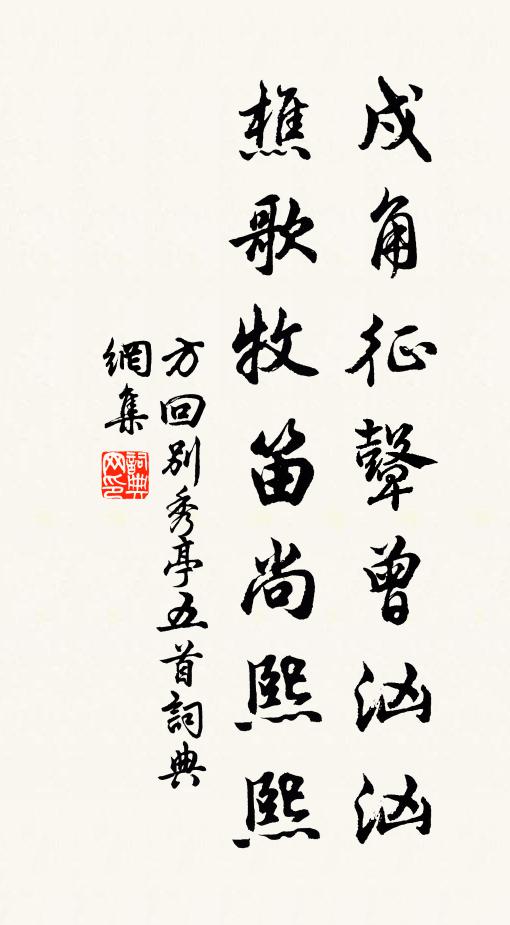 戍角征鼙曾汹汹
樵歌牧笛尚熙熙
方回別秀亭五首詞典
網集
詞典網印